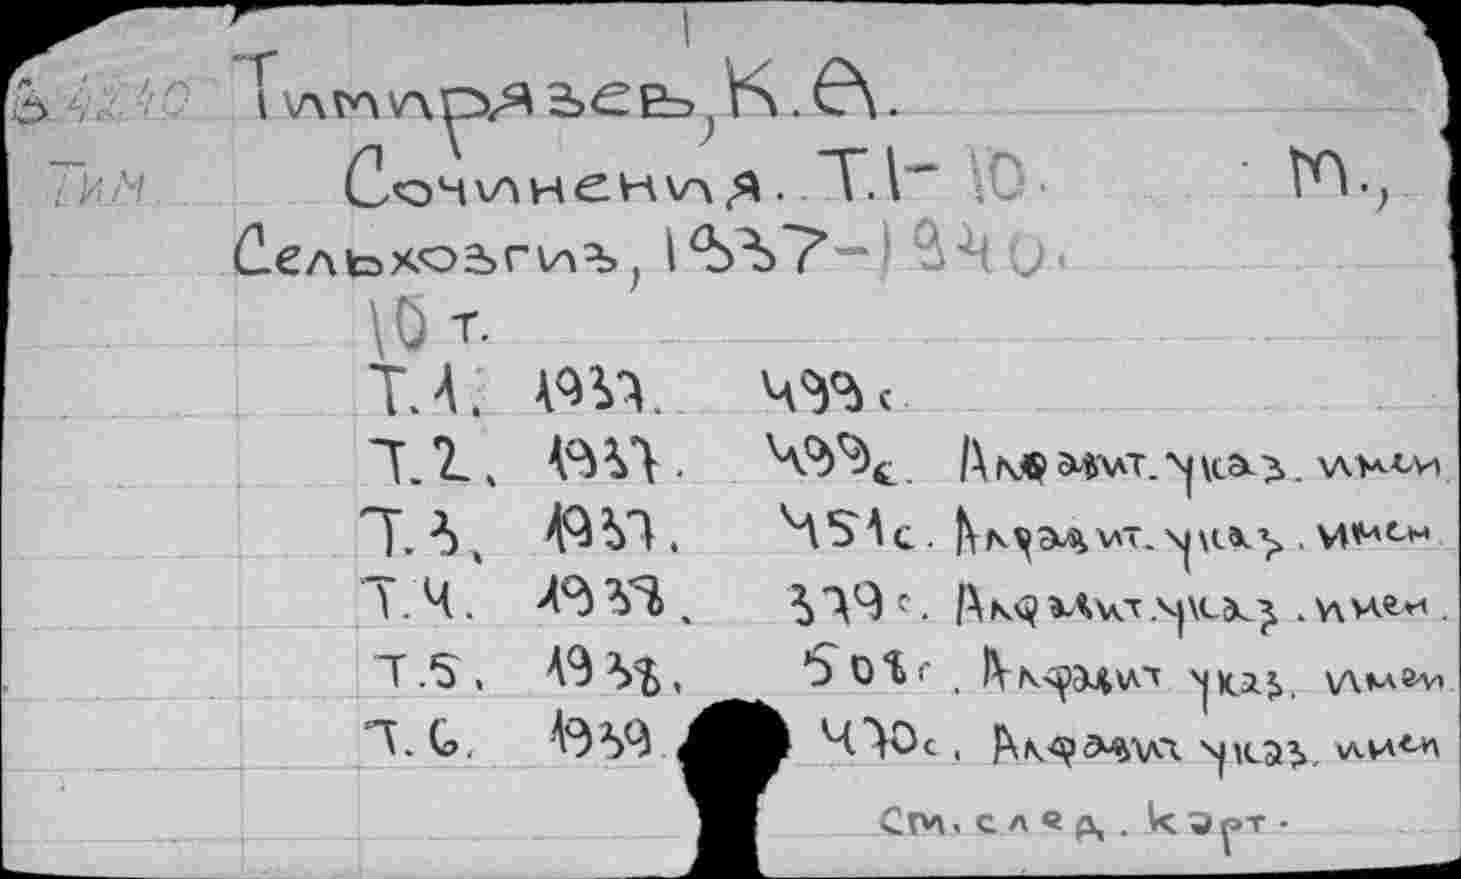 Тимирязев, К.А.
Тим Сочинения. Т.1-10. М.,
Сельхозгиз, 1937-1940.
10 т.
Т.1. 1937. 499с
Т.2. 1937. 499с. Алфавит. указ. имен
Т.3. 1937. 451с. Алфавит. указ. имен
Т.4. 1938. 379с. Алфавит. указ. имен.
Т.5. 1938. 501с. Алфавит указ. имен
Т.6. 1939 470с. Алфавит указ. имен
См. след. карт.